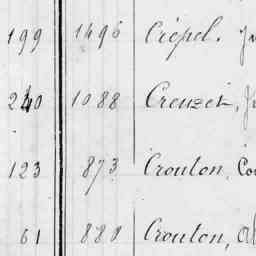 199 1496 Crépel.
240 1088 Creuzet,
123 873 Croulon,
61 880 Croulon,